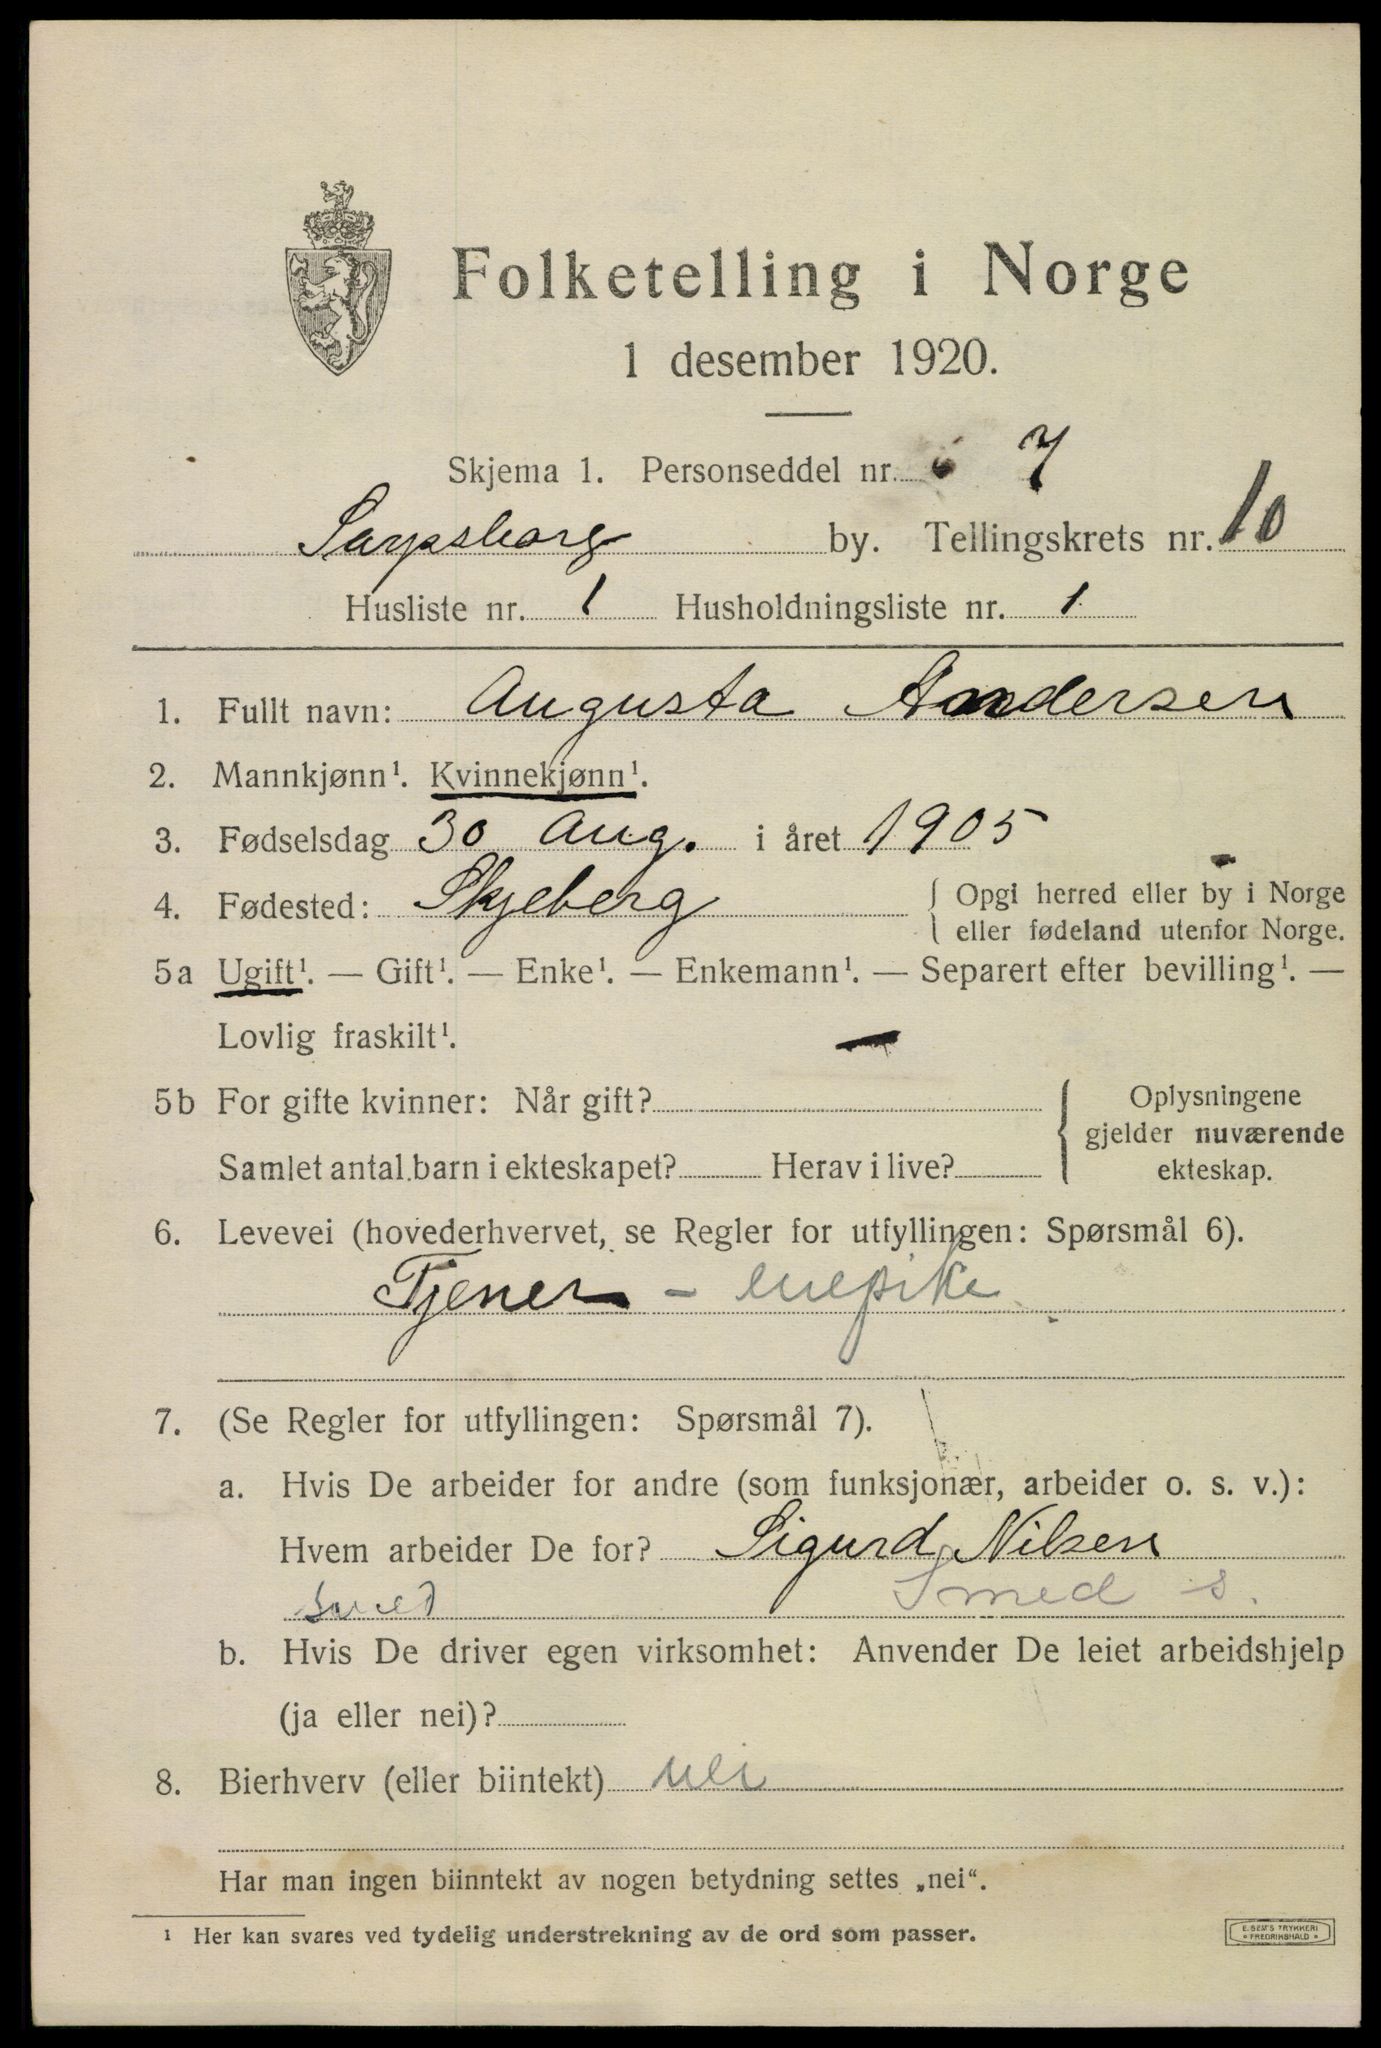 Folketelling i Norge
1 desember 1920.
Skjema 1. Personseddel nr. 7
Sarpsborg by. Tellingskrets nr. 10
Husliste nr. 1 Husholdningsliste nr. 1
1. Fullt navn: Augusta Andersen
2. Mannkjønn¹. Kvinnekjønn¹.
3. Fødselsdag 30 Aug. i året 1905
4. Fødested: Skjeberg { Opgi herred eller by i Norge
eller fødeland utenfor Norge.
5a Ugift¹. — Gift¹. — Enke¹. — Enkemann¹. — Separert efter bevilling¹. —
Lovlig fraskilt¹.
5b For gifte kvinner: Når gift? Oplysningene
gjelder nuværende
Samlet antal barn i ekteskapet? Herav i live? ekteskap.
6. Levevei (hovederhvervet, se Regler for utfyllingen: Spørsmål 6).
Tjener - enepike
7. (Se Regler for utfyllingen: Spørsmål 7).
a. Hvis De arbeider for andre (som funksjonær, arbeider o. s. v.):
Hvem arbeider De for? Sigurd Nilsen
smed Smed s.
b. Hvis De driver egen virksomhet: Anvender De leiet arbeidshjelp
(ja eller nei)?
8. Bierhverv (eller biintekt) nei
Har man ingen biinntekt av nogen betydning settes „nei“.
¹ Her kan svares ved tydelig understrekning av de ord som passer.
E. SEM'S TRYKKERI
FREDRIKSHALD